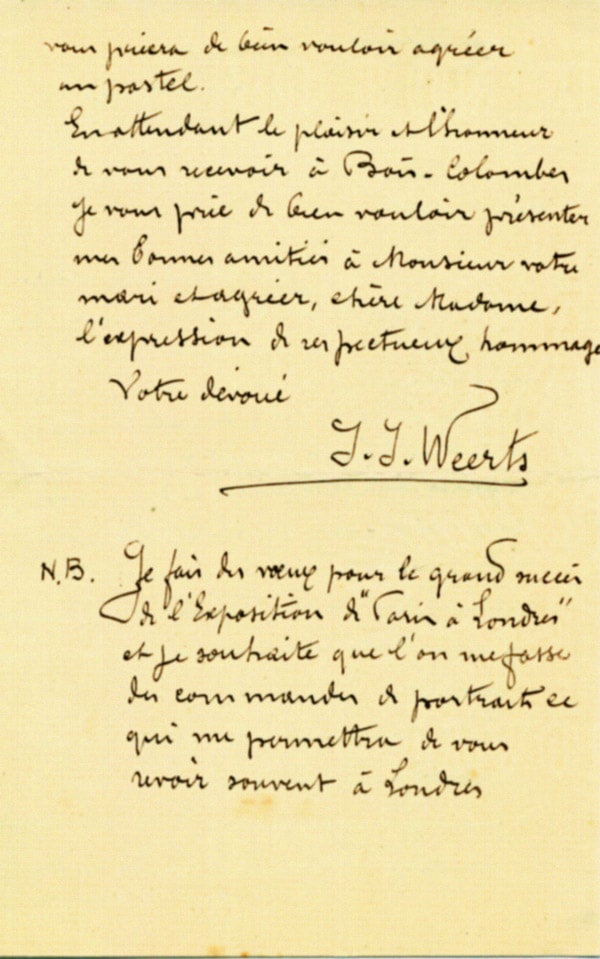 vous priera de bien vouloir agréer
un pastel.
En attendant le plaisir et l'honneur
de vous recevoir à Bois-Colombes
je vous prie de bien vouloir présenter
mes bonnes amitiés à Monsieur votre
mari et agréer, chère Madame,
l'expression de respectueux hommage
Votre dévoué
J.J. Weerts
N.B. Je fais des vœux pour le grand succès
de l'Exposition de "Paris à Londres"
et je souhaite que l'on me fasse
des commandes de portraits ce
qui me permettra de vous
revoir souvent à Londres